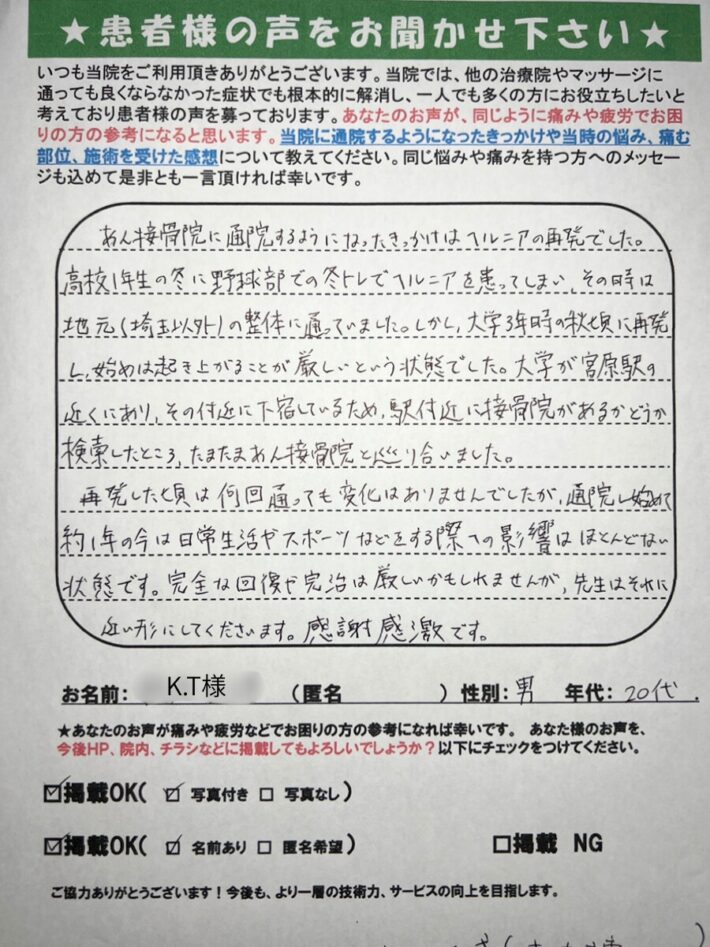 ★患者様の声をお聞かせ下さい★
いつも当院をご利用頂きありがとうございます。当院では、他の治療院やマッサージに
通っても良くならなかった症状でも根本的に解消し、一人でも多くの方にお役立ちしたいと
考えており患者様の声を募っております。あなたのお声が、同じように痛みや疲労でお困
りの方の参考になると思います。当院に通院するようになったきっかけや当時の悩み、痛む
部位、施術を受けた感想について教えてください。同じ悩みや痛みを持つ方へのメッセー
ジも込めて是非とも一言頂ければ幸いです。
あん接骨院に通院するようになったきっかけはヘルニアの再発でした。
高校1年生の冬に野球部での冬トレでヘルニアを患ってしまい、その時は
地元(埼玉以外)の整体に通っていました。しかし、大学3年時の秋頃に再発
し、始めは起き上がることが厳しいという状態でした。大学が宮原駅の
近くにあり、その付近に下宿しているため、駅付近に接骨院があるかどうか
検索したところ、たまたまあん接骨院と巡り合いました。
再発した頃は何回通っても変化はありませんでしたが、通院し始めて
約1年の今は日常生活やスポーツなどをする際への影響はほとんどない
状態です。完全な回復や完治は厳しいかもしれませんが、先生はそれに
近い形にしてくださいます。感謝感激です。
お名前: K.T様 (匿名 ) 性別:男 年代:20代.
★あなたのお声が痛みや疲労などでお困りの方の参考になれば幸いです。 あなた様のお声を、
今後HP、院内、チラシなどに掲載してもよろしいでしょうか?以下にチェックをつけてください。
☑掲載OK( ☑ 写真付き ☐ 写真なし )
☑掲載OK( ☑ 名前あり ☐ 匿名希望 ) ☐掲載 NG
ご協力ありがとうございます!今後も、より一層の技術力、サービスの向上を目指します。